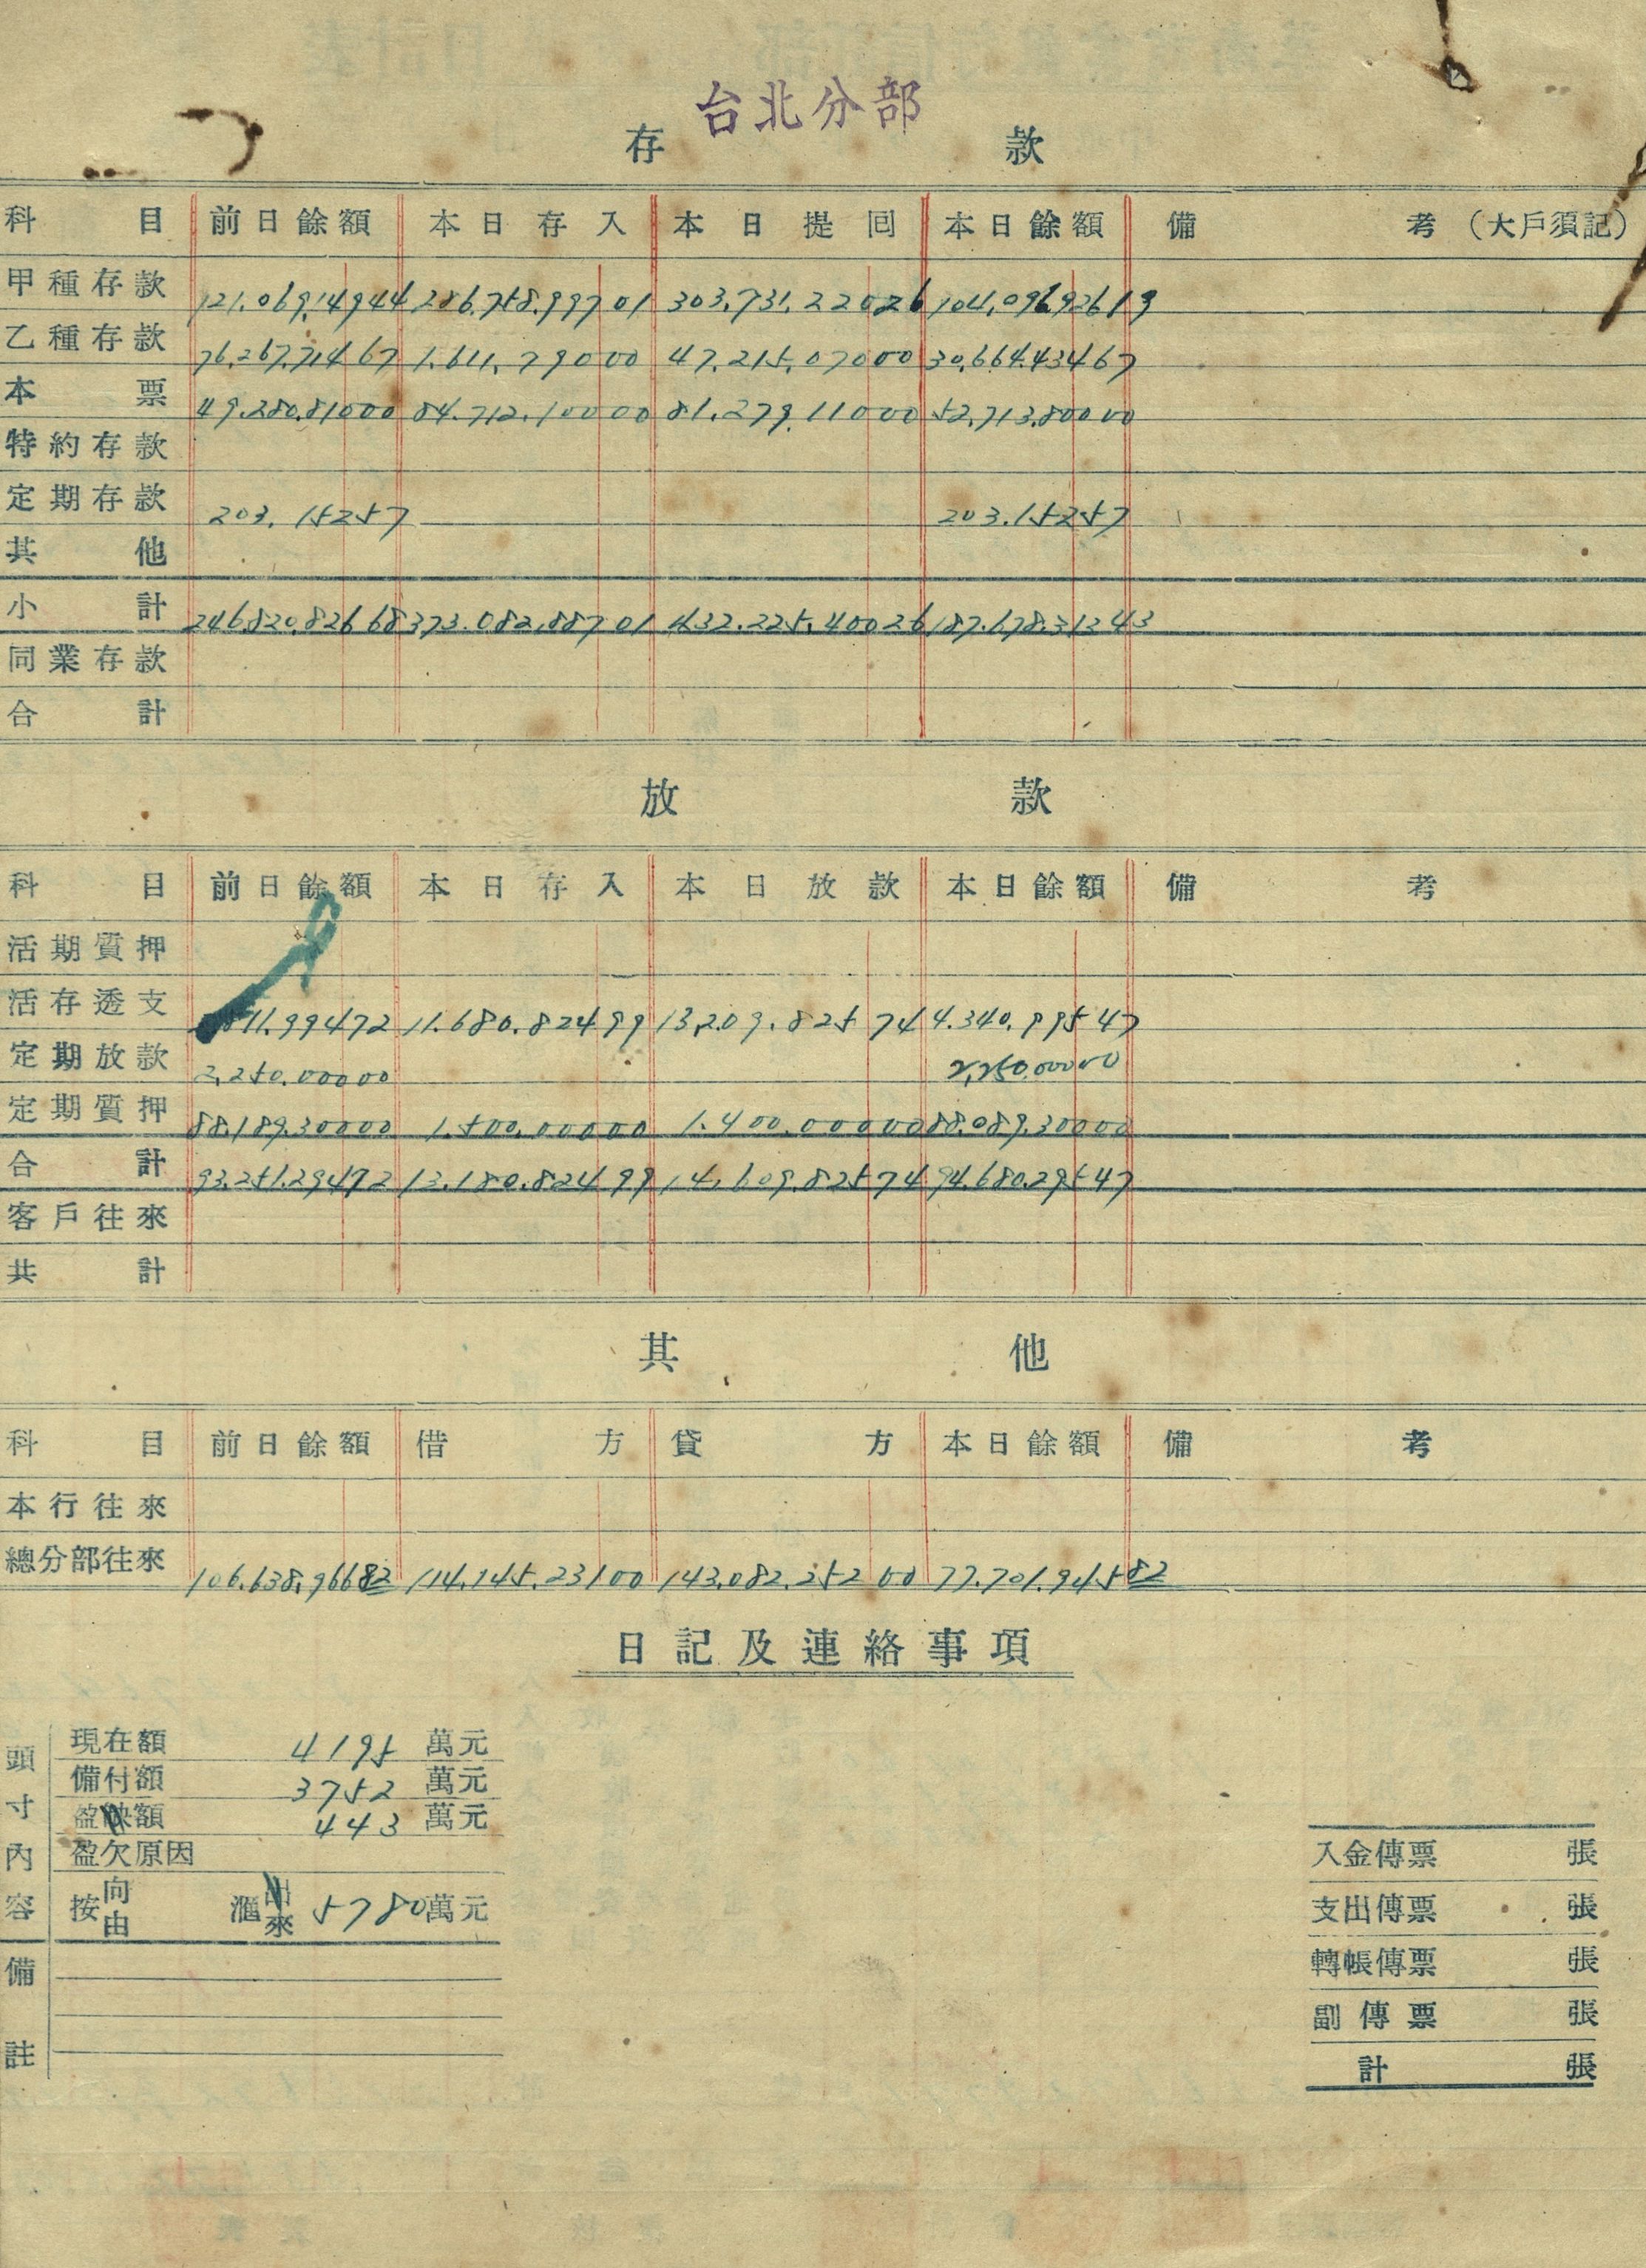 台北分部
存款
科目 前日餘額 本日存入 本日提回 本日餘額 備考（大戶須記）
甲種存款 121.069,149 44 286.758.997 01 303.731.220 26 104,096,926 19
乙種存款 76,267,714 67 1.611,790 00 47,215,070 00 30,664,434 67
本票 49,280,810 00 84.712,100 00 81,279,110 00 52,713,800 00
特約存款
定期存款 203,152 57 203.152 57
其他
小計 246,820,826 68 373.082,887 01 432.225,400 26 187.678.313 43
同業存款
合計
放款
科目 前日餘額 本日存入 本日放款 本日餘額 備考
活期質押
活存透支 811,994 72 11.680.824 99 13,209,825 74 4.340,995 47
定期放款 2,250,000 00 2,250,000 00
定期質押 88,189,300 00 1,500,000 00 1.400,000 00 88,089,300 00
合計 93,251,294 72 13,180,824 99 14,609,825 74 94,680,295 47
客戶往來
共計
其他
科目 前日餘額 借方 貸方 本日餘額 備考
本行往來
總分部往來 106,638,966 82 114,145,231 00 143,082,252 00 77,701,945 82
日記及連絡事項
頭寸內容
現在額 4195 萬元
備付額 3752 萬元
盈缺額 443 萬元
盈欠原因
按向由 滙出來 5780 萬元
備註
入金傳票 張
支出傳票 張
轉帳傳票 張
副傳票 張
計 張